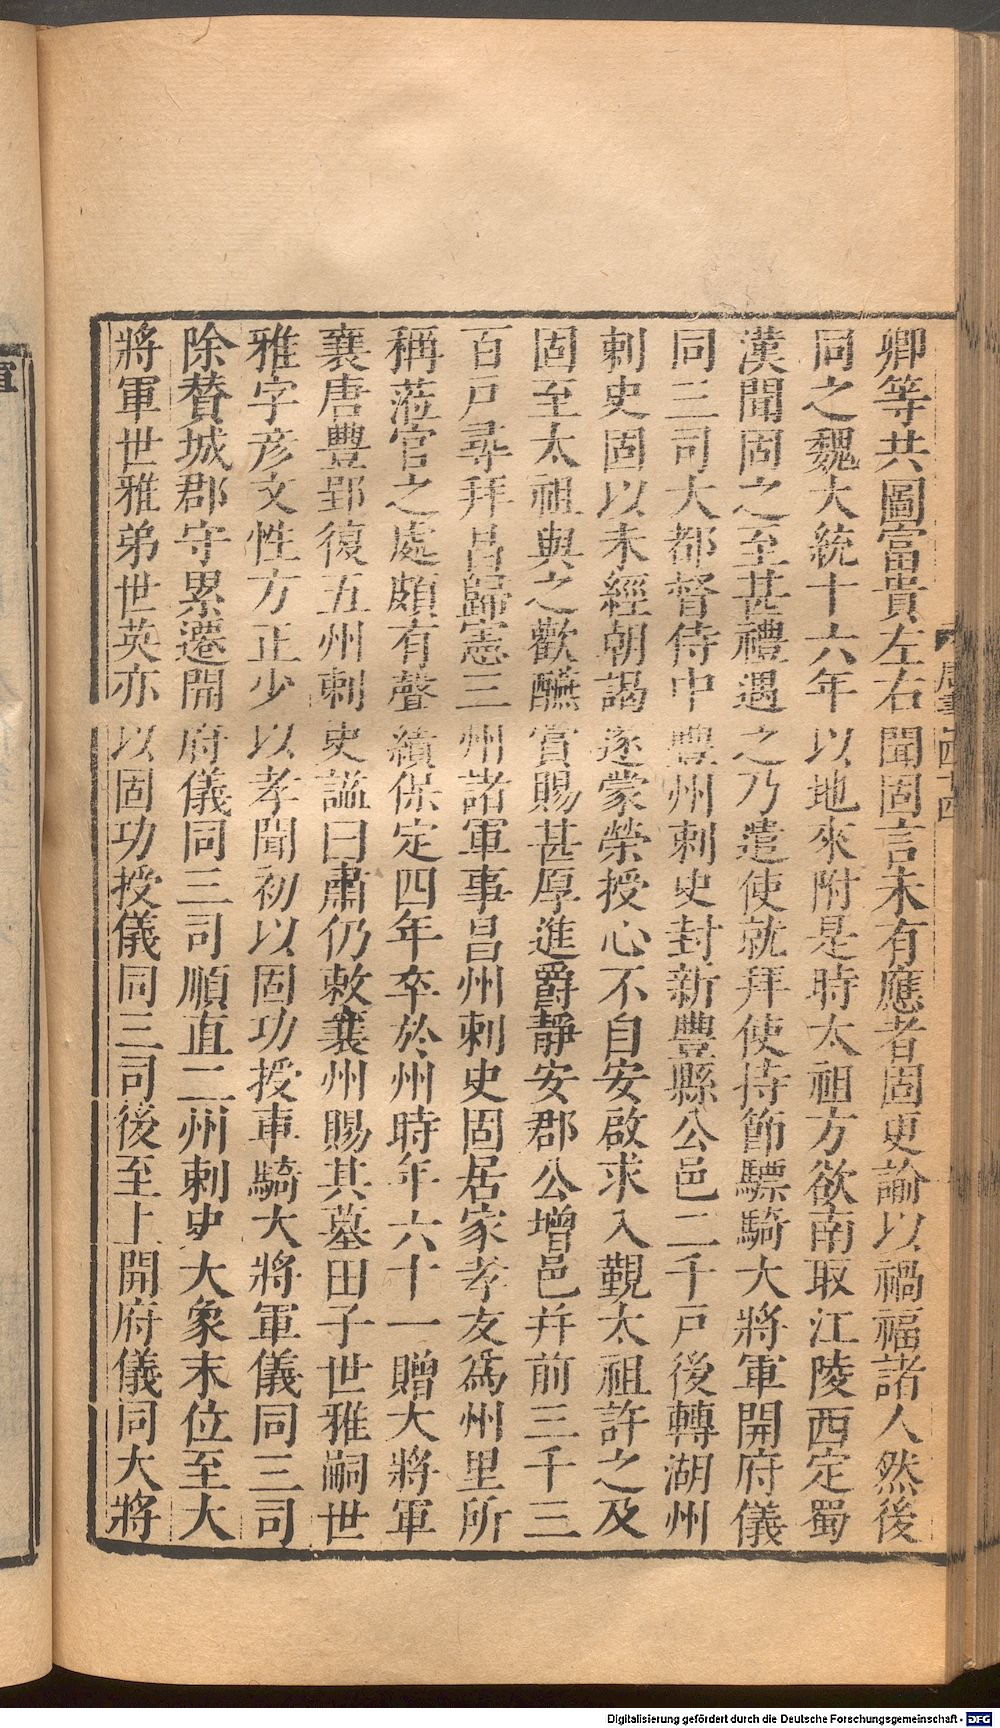 卿等共圖富貴左右聞固言未有應者固更諭以禍福諸人然後
同之魏大統十六年以地來附是時太祖方欲南取江陵西定蜀
漢聞固之至甚禮遇之乃遣使就拜使持節驃騎大將軍開府儀
同三司大都督侍中豐州刺史封新豐縣公邑二千戸後轉湖州
刺史固以未經朝謁遂蒙榮授心不自安啟求入覲太祖許之及
固至太祖與之歡醼賞賜甚厚進爵靜安郡公增邑并前三千三
百戸尋拜昌歸憲三州諸軍事昌州刺史固居家孝友爲州里所
稱蒞官之處頗有聲績保定四年卒於州時年六十一贈大將軍
襄唐豐郢復五州刺史謚曰肅仍敕襄州賜其墓田子世雅嗣世
雅字彥文性方正少以孝聞初以固功授車騎大將軍儀同三司
除賛城郡守累遷開府儀同三司順直二州刺史大象末位至大
將軍世雅弟世英亦以固功授儀同三司後至上開府儀同大將
Digitalisierung gefördert durch die Deutsche Forschungsgemeinschaft - DFG